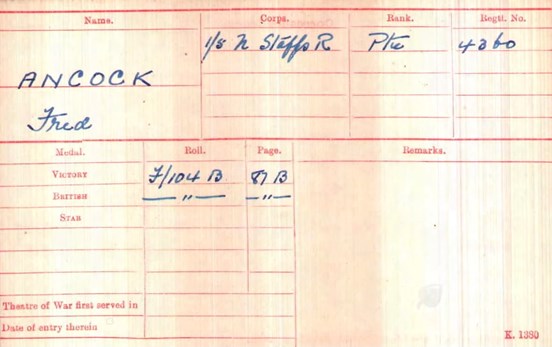 Name. Corps. Rank. Regtl. No.
1/5 N Staffs R Pte 4360
ANCOCK
Fred
Medal. Roll. Page. Remarks.
VICTORY F/104 B 87 B
BRITISH — " — — " —
STAR
Theatre of War first served in
Date of entry therein
K. 1380